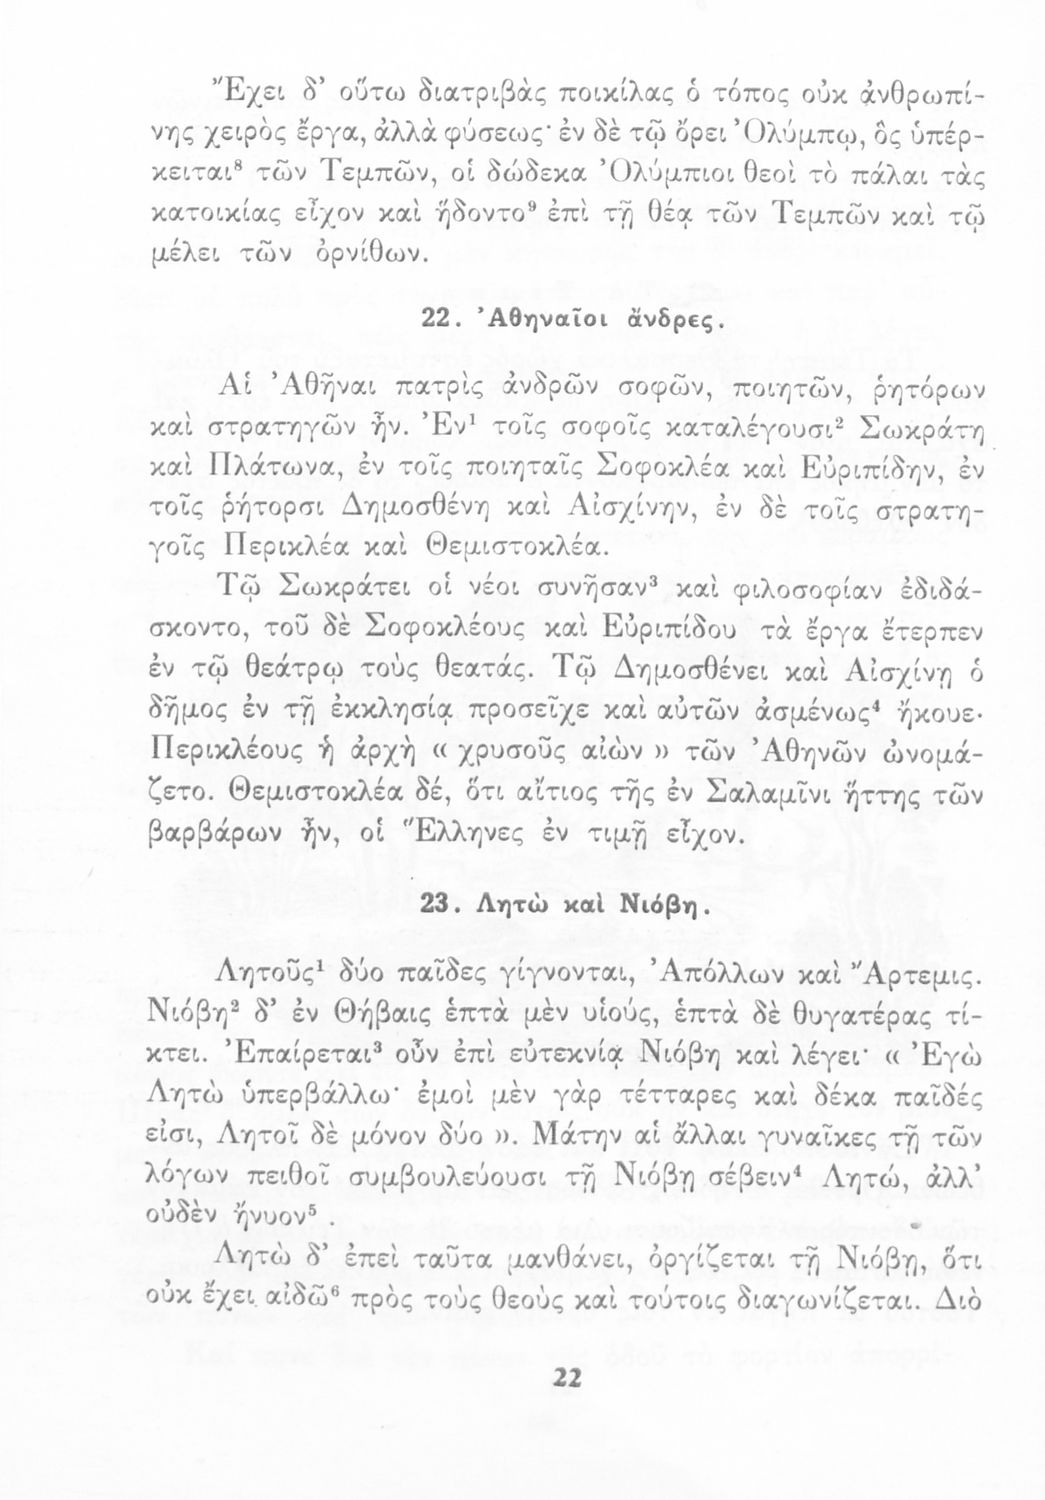 Ἔχει δ’ οὕτω διατριβὰς ποικίλας ὁ τόπος οὐκ ἀνθρωπί-
νης χειρὸς ἔργα, ἀλλὰ φύσεως· ἐν δὲ τῷ ὄρει Ὀλύμπῳ, ὃς ὑπέρ-
κειται⁸ τῶν Τεμπῶν, οἱ δώδεκα Ὀλύμπιοι θεοὶ τὸ πάλαι τὰς
κατοικίας εἶχον καὶ ἥδοντο⁹ ἐπὶ τῇ θέᾳ τῶν Τεμπῶν καὶ τῷ
μέλει τῶν ὀρνίθων.
22. Ἀθηναῖοι ἄνδρες.
Αἱ Ἀθῆναι πατρὶς ἀνδρῶν σοφῶν, ποιητῶν, ῥητόρων
καὶ στρατηγῶν ἦν. Ἐν¹ τοῖς σοφοῖς καταλέγουσι² Σωκράτη
καὶ Πλάτωνα, ἐν τοῖς ποιηταῖς Σοφοκλέα καὶ Εὐριπίδην, ἐν
τοῖς ῥήτορσι Δημοσθένη καὶ Αἰσχίνην, ἐν δὲ τοῖς στρατη-
γοῖς Περικλέα καὶ Θεμιστοκλέα.
Τῷ Σωκράτει οἱ νέοι συνῆσαν³ καὶ φιλοσοφίαν ἐδιδά-
σκοντο, τοῦ δὲ Σοφοκλέους καὶ Εὐριπίδου τὰ ἔργα ἔτερπεν
ἐν τῷ θεάτρῳ τοὺς θεατάς. Τῷ Δημοσθένει καὶ Αἰσχίνῃ ὁ
δῆμος ἐν τῇ ἐκκλησίᾳ προσεῖχε καὶ αὐτῶν ἀσμένως⁴ ἤκουε·
Περικλέους ἡ ἀρχὴ « χρυσοῦς αἰὼν » τῶν Ἀθηνῶν ὠνομά-
ζετο. Θεμιστοκλέα δέ, ὅτι αἴτιος τῆς ἐν Σαλαμῖνι ἥττης τῶν
βαρβάρων ἦν, οἱ Ἕλληνες ἐν τιμῇ εἶχον.
23. Λητὼ καὶ Νιόβη.
Λητοῦς¹ δύο παῖδες γίγνονται, Ἀπόλλων καὶ Ἄρτεμις.
Νιόβη² δ’ ἐν Θήβαις ἑπτὰ μὲν υἱούς, ἑπτὰ δὲ θυγατέρας τί-
κτει. Ἐπαίρεται³ οὖν ἐπὶ εὐτεκνίᾳ Νιόβη καὶ λέγει· « Ἐγὼ
Λητὼ ὑπερβάλλω· ἐμοὶ μὲν γὰρ τέτταρες καὶ δέκα παῖδές
εἰσι, Λητοῖ δὲ μόνον δύο ». Μάτην αἱ ἄλλαι γυναῖκες τῇ τῶν
λόγων πειθοῖ συμβουλεύουσι τῇ Νιόβῃ σέβειν⁴ Λητώ, ἀλλ’
οὐδὲν ἤνυον⁵ .
Λητὼ δ’ ἐπεὶ ταῦτα μανθάνει, ὀργίζεται τῇ Νιόβῃ, ὅτι
οὐκ ἔχει αἰδῶ⁶ πρὸς τοὺς θεοὺς καὶ τούτοις διαγωνίζεται. Διὸ
22